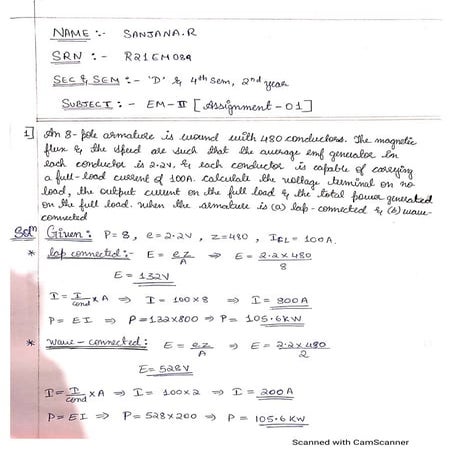 NAME :- SANJANA.R
SRN :- R21EM089
SEC & SEM :- 'D' & 4th Sem, 2nd year
SUBJECT :- EM-II [Assignment-01]
1] An 8-pole armature is wound with 480 conductors. The magnetic
flux & the speed are such that the average emf generator in
each conductor is 2.2V, & each conductor is capable of carrying
a full-load current of 100A. calculate the voltage terminal on no
load, the output current on the full load & the total power generated
on the full load. when the armature is (a) lap-connected & (b) wave-
connected
Solⁿ Given: P=8, e=2.2V, z=480, IFL=100A.
* lap connected:- E = e.z/A ⇒ E = 2.2×480/8
E = 132V
I = I/cond × A ⇒ I = 100×8 ⇒ I = 800A
P = EI ⇒ P=132×800 ⇒ P = 105.6KW
* wave-connected: E = e.z/A ⇒ E = 2.2×480/2
E = 528V
I = I/cond × A ⇒ I = 100×2 ⇒ I = 200A
P = EI ⇒ P = 528×200 ⇒ P = 105.6KW
Scanned with CamScanner